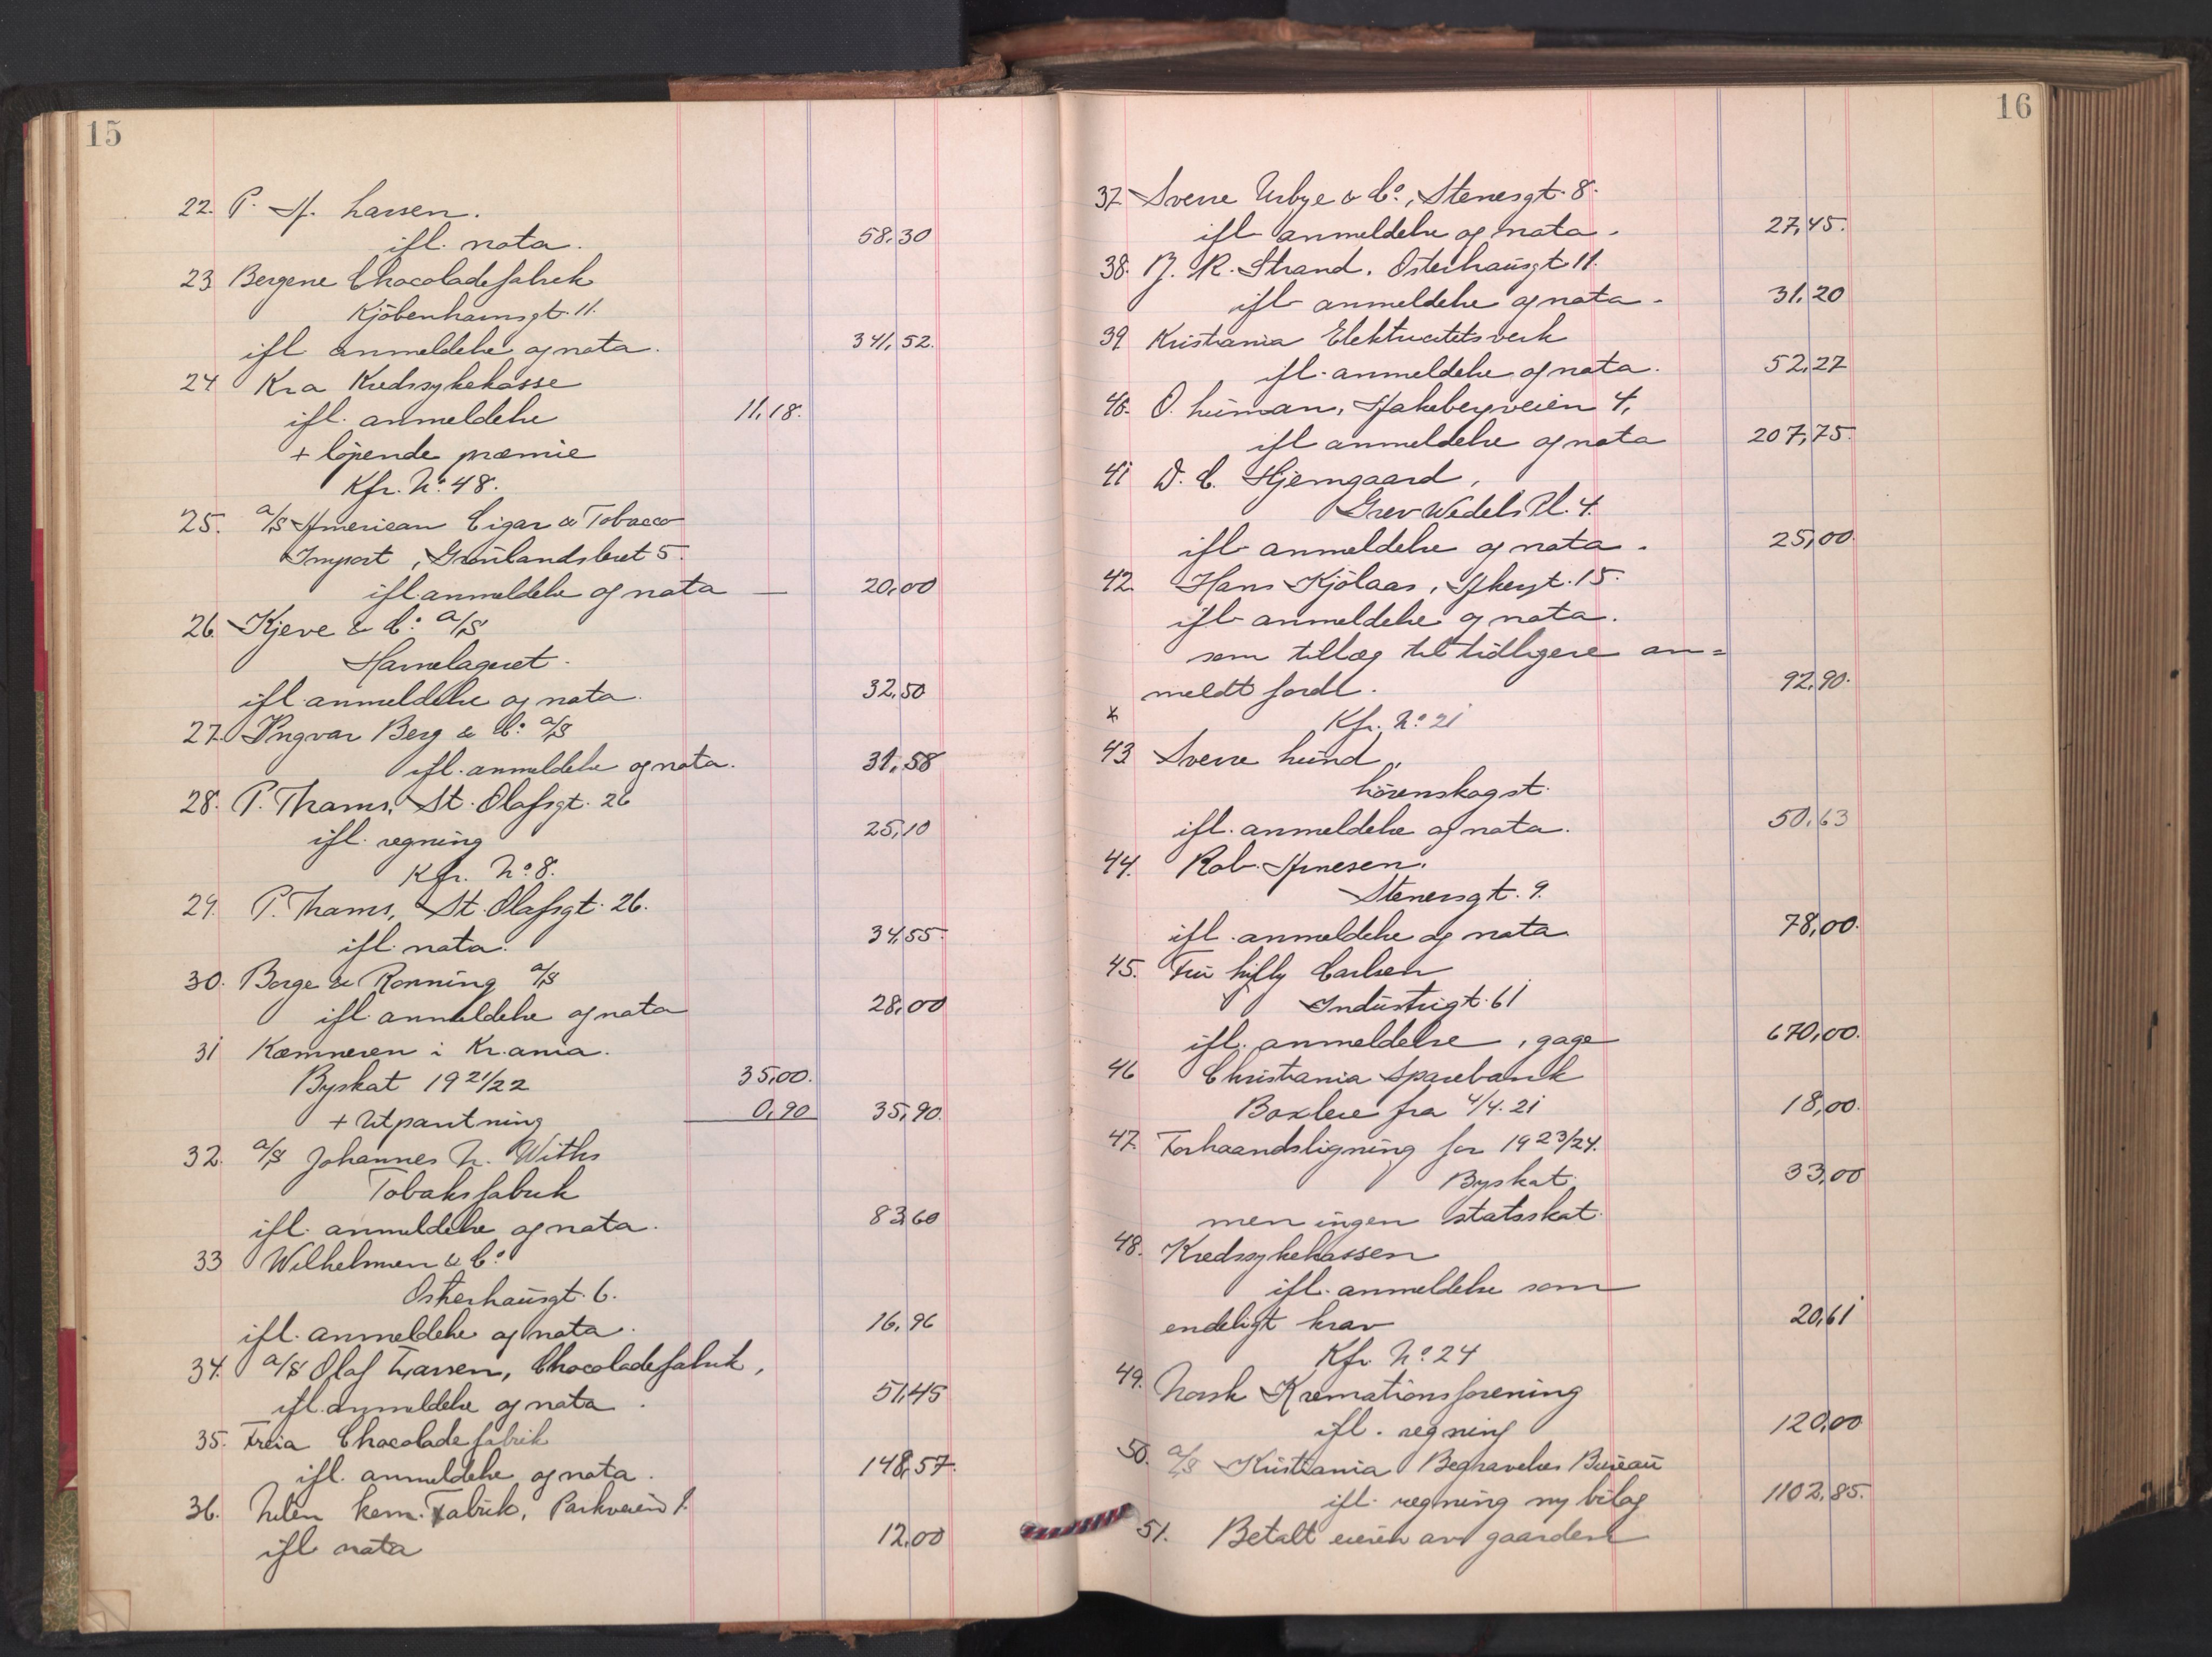 15
22. P. A. Larsen.
ifl. nota. 58,30
23 Bergene Chocoladefabrik
Kjöbenhavnsgt. 11.
ifl anmeldelse og nota. 341,52.
24 Kra Kredssykekasse
ifl. anmeldelse 11,18.
+ löpende præmie
Kfr. No. 48.
25. a/s American Cigar & Tobacco
Import, Grönlandsleret 5.
ifl. anmeldelse og nota — 20,00
26. Kjeve & Co. a/s
Havnelageret.
ifl. anmeldelse og nota. 32,50
27. Yngvar Berg & Co. a/s
ifl. anmeldelse og nota. 31,58
28. P. Thams, St. Olafsgt. 26
ifl. regning 25,10
Kfr. No. 8.
29. P. Thams, St. Olafsgt. 26.
ifl. nota. 34,55.
30. Borge & Ronning a/s
ifl. anmeldelse og nota 28,00
31 Kæmneren i Kr.ania.
Byskat 1921/22 35,00.
+ Utpantning 0,90 35,90.
32. a/s Johannes N. Withs
Tobaksfabrik
ifl. anmeldelse og nota. 83,60
33 Wilhelmsen & Co.
Osterhausgt. 6.
ifl. anmeldelse og nota. 16,96
34. a/s Olaf Larssen, Chocoladefabrik,
ifl. anmeldelse og nota. 51,45
35. Freia Chocoladefabrik
ifl. anmeldelse og nota. 148,57.
36. kem. Fabrik, Parkveien 1.
ifl nota 12,00
16
37 Sverre Urbye & Co., Stenersgt. 8.
ifl anmeldelse og nota. 27,45.
38. B. R. Strand. Osterhausgt. 11.
ifl anmeldelse og nota. 31,20
39 Kristiania Elektricitetsverk
ifl. anmeldelse og nota. 52,27
40. O. Luman, Akebergveien 4,
ifl anmeldelse og nota 207,75.
41 D. C. Hjemgaard,
Grev Wedels Pl. 4.
ifl anmeldelse og nota. 25,00.
42. Hans Kjölaas, Akersgt. 15.
ifl anmeldelse og nota.
som tillæg til tidligere an=
meldt fordr. 92,90.
x Kfr. No. 21
43 Sverre Lund,
Lörenskogst.
ifl. anmeldelse og nota. 50,63
44. Rob. Arnesen.
Stenersgt. 9.
ifl. anmeldelse og nota 78,00.
45. Fru Lilly Carlsen
Industrigt. 61
ifl. anmeldelse, gage 670,00.
46 Christiania Sparebank
Boxleie fra 4/4. 21 18,00.
47. Forhaandsligning for 1923/24.
Byskat. 33,00
men ingen statsskat.
48. Kredssykekassen
ifl. anmeldelse som
endeligt krav 20,61
Kfr. No. 24
49. Norsk Kremationsforening
ifl. regning 120,00
50. a/s Kristiania Begravelses Bureau
ifl. regning ny bilag 1102,85.
51. Betalt eieren av gaarden